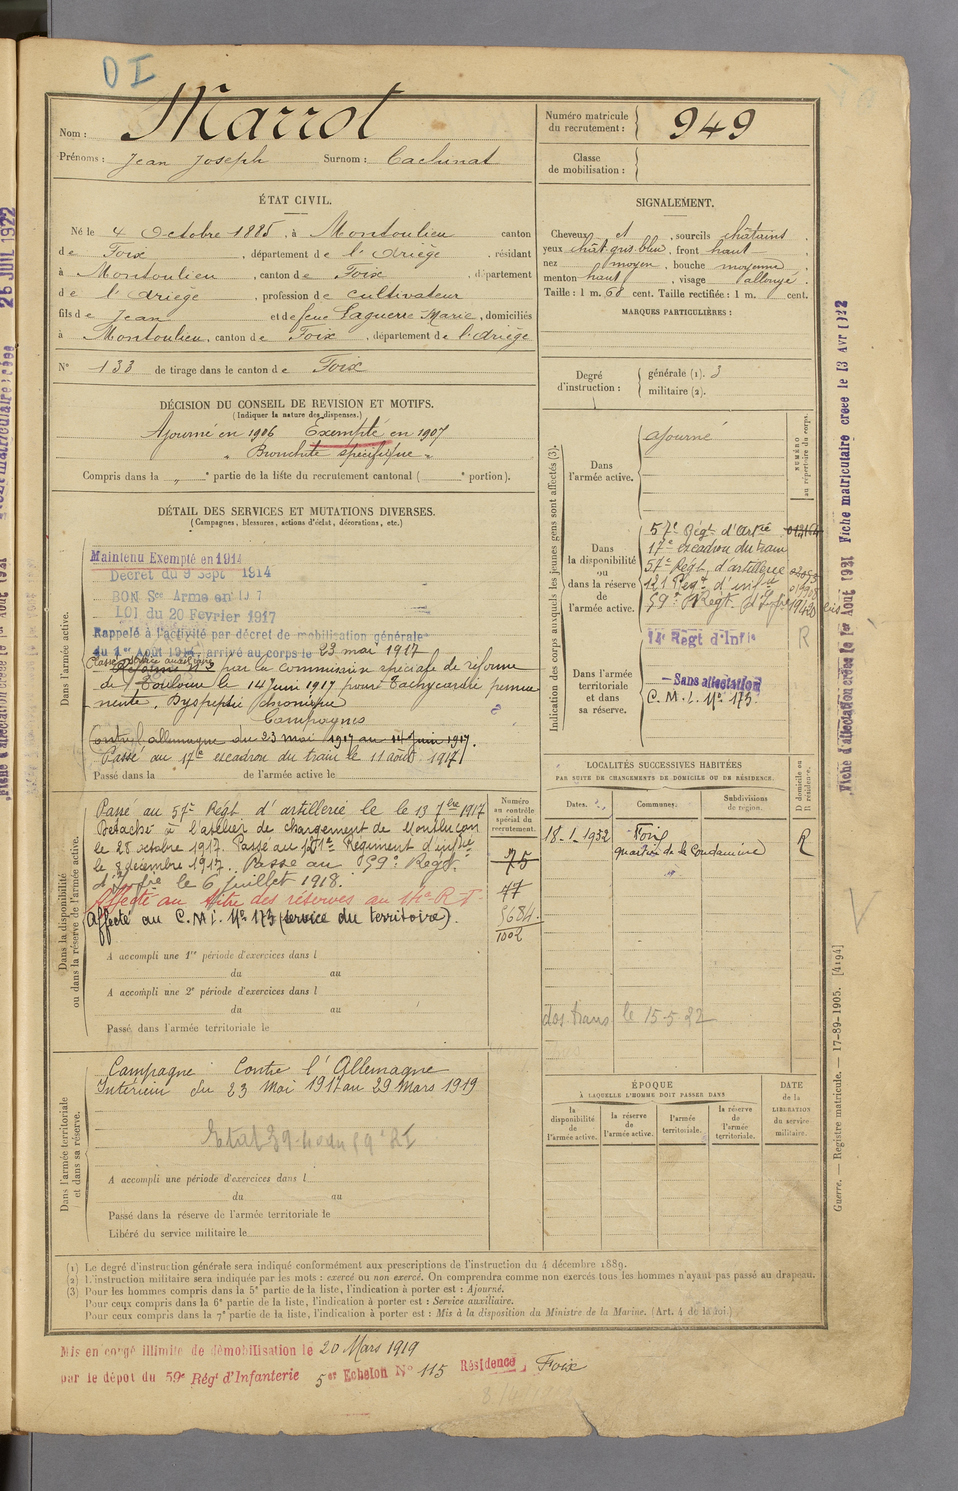 D I
Nom : Marrot
Prénoms : Jean Joseph Surnom : Cachinat
Numéro matricule du recrutement : 949
Classe de mobilisation :
ÉTAT CIVIL.
Né le 4 Octobre 1885, à Montoulieu canton
de Foix, département de l'Ariège, résidant
à Montoulieu, canton de Foix, département
de l'Ariège, profession de cultivateur
fils de Jean et de feue Laguerre Marie, domiciliés
à Montoulieu, canton de Foix, département de l'Ariège
N° 133 de tirage dans le canton de Foix
SIGNALEMENT.
Cheveux et, sourcils châtains,
yeux chât. gris bleu, front haut
nez moyen, bouche moyenne,
menton haut, visage allongé.
Taille : 1 m. 68 cent. Taille rectifiée : 1 m. cent.
MARQUES PARTICULIÈRES :
Degré d'instruction : générale (1). 3
militaire (2).
DÉCISION DU CONSEIL DE REVISION ET MOTIFS.
(Indiquer la nature des dispenses.)
Ajourné en 1906 Exempté en 1907
" Bronchite spécifique "
Compris dans la " e partie de la liste du recrutement cantonal ( e portion).
DÉTAIL DES SERVICES ET MUTATIONS DIVERSES.
(Campagnes, blessures, actions d'éclat, décorations, etc.)
Dans l'armée active.
Maintenu Exempté en 1914
Décret du 9 Sept 1914
BON Sce Armé en 1917
LOI du 20 Fevrier 1917
Rappelé à l'activité par décret de mobilisation générale
du 1er Août 1914, arrivé au corps le 23 mai 1917
Passé service auxiliaire
Réformé N° 3 par la commission spéciale de réforme
de Toulouse le 14 Juin 1917 pour Tachycardie perma
nente, Dyspepsie chronique
Campagnes
Contre l'allemagne du 23 mai 1917 au 14 juin 1917.
Passé au 17e escadron du train le 11 août 1917
Passé dans la de l'armée active le
Dans la disponibilité ou dans la réserve de l'armée active.
Passé au 57e Régt d'artillerie le le 13 7bre 1917
Détaché à l'atelier de chargement de Montluçon
le 28 octobre 1917. Passé au 121e Régiment d'infie
le 8 décembre 1917. Passé au 59e Regt
d'Infie le 6 juillet 1918.
Affecté au titre des réserves au 14e R I
Affecté au C.M.I. N° 173 (service du territoire).
A accompli une 1re période d'exercices dans l
du au
A accompli une 2e période d'exercices dans l
du au
Passé dans l'armée territoriale le
Numéro au contrôle spécial du recrutement.
75
47
5684
1002
Dans l'armée territoriale et dans sa réserve.
Campagne Contre l'Allemagne
Intérieur du 23 Mai 1917 au 29 Mars 1919
A accompli une période d'exercices dans l
du au
Passé dans la réserve de l'armée territoriale le
Libéré du service militaire le
Indication des corps auxquels les jeunes gens sont affectés (3).
NUMÉRO au répertoire du corps.
Dans l'armée active.
ajourné
Dans la disponibilité ou dans la réserve de l'armée active.
57e Régt d'Artie
17e escadron du train
57e Régt d'artillerie
121 Regt d'infie
59e Regt d'Infie
R
Dans l'armée territoriale et dans sa réserve.
14e Régt d'Infie
Sans affectation
C.M.I. N° 173.
LOCALITÉS SUCCESSIVES HABITÉES
PAR SUITE DE CHANGEMENTS DE DOMICILE OU DE RÉSIDENCE.
Dates. Communes. Subdivisions de région. D domicile ou R résidence.
18-1-1932 Foix R
quartier de la Condamine
dos. trans le 15-5-22
ÉPOQUE
À LAQUELLE L'HOMME DOIT PASSER DANS
la disponibilité de l'armée active.
la réserve de l'armée active.
l'armée territoriale.
la réserve de l'armée territoriale.
DATE de la LIBÉRATION du service militaire.
(1) Le degré d'instruction générale sera indiqué conformément aux prescriptions de l'instruction du 4 décembre 1889.
(2) L'instruction militaire sera indiquée par les mots : exercé ou non exercé. On comprendra comme non exercés tous les hommes n'ayant pas passé au drapeau.
(3) Pour les hommes compris dans la 5e partie de la liste, l'indication à porter est : Ajourné.
Pour ceux compris dans la 6e partie de la liste, l'indication à porter est : Service auxiliaire.
Pour ceux compris dans la 7e partie de la liste, l'indication à porter est : Mis à la disposition du Ministre de la Marine. (Art. 4 de la loi.)
Mis en congé illimité de démobilisation le 20 Mars 1919
par le dépôt du 59e Régt d'Infanterie 5er Echelon N° 115 Résidence, Foix
Fiche d'affectation créée le 1er Août 1931 Fiche matriculaire creee le 13 Avr 1922
Guerre. — Registre matricule. — 17-89-1905. [4194]
26 JUIL 1922